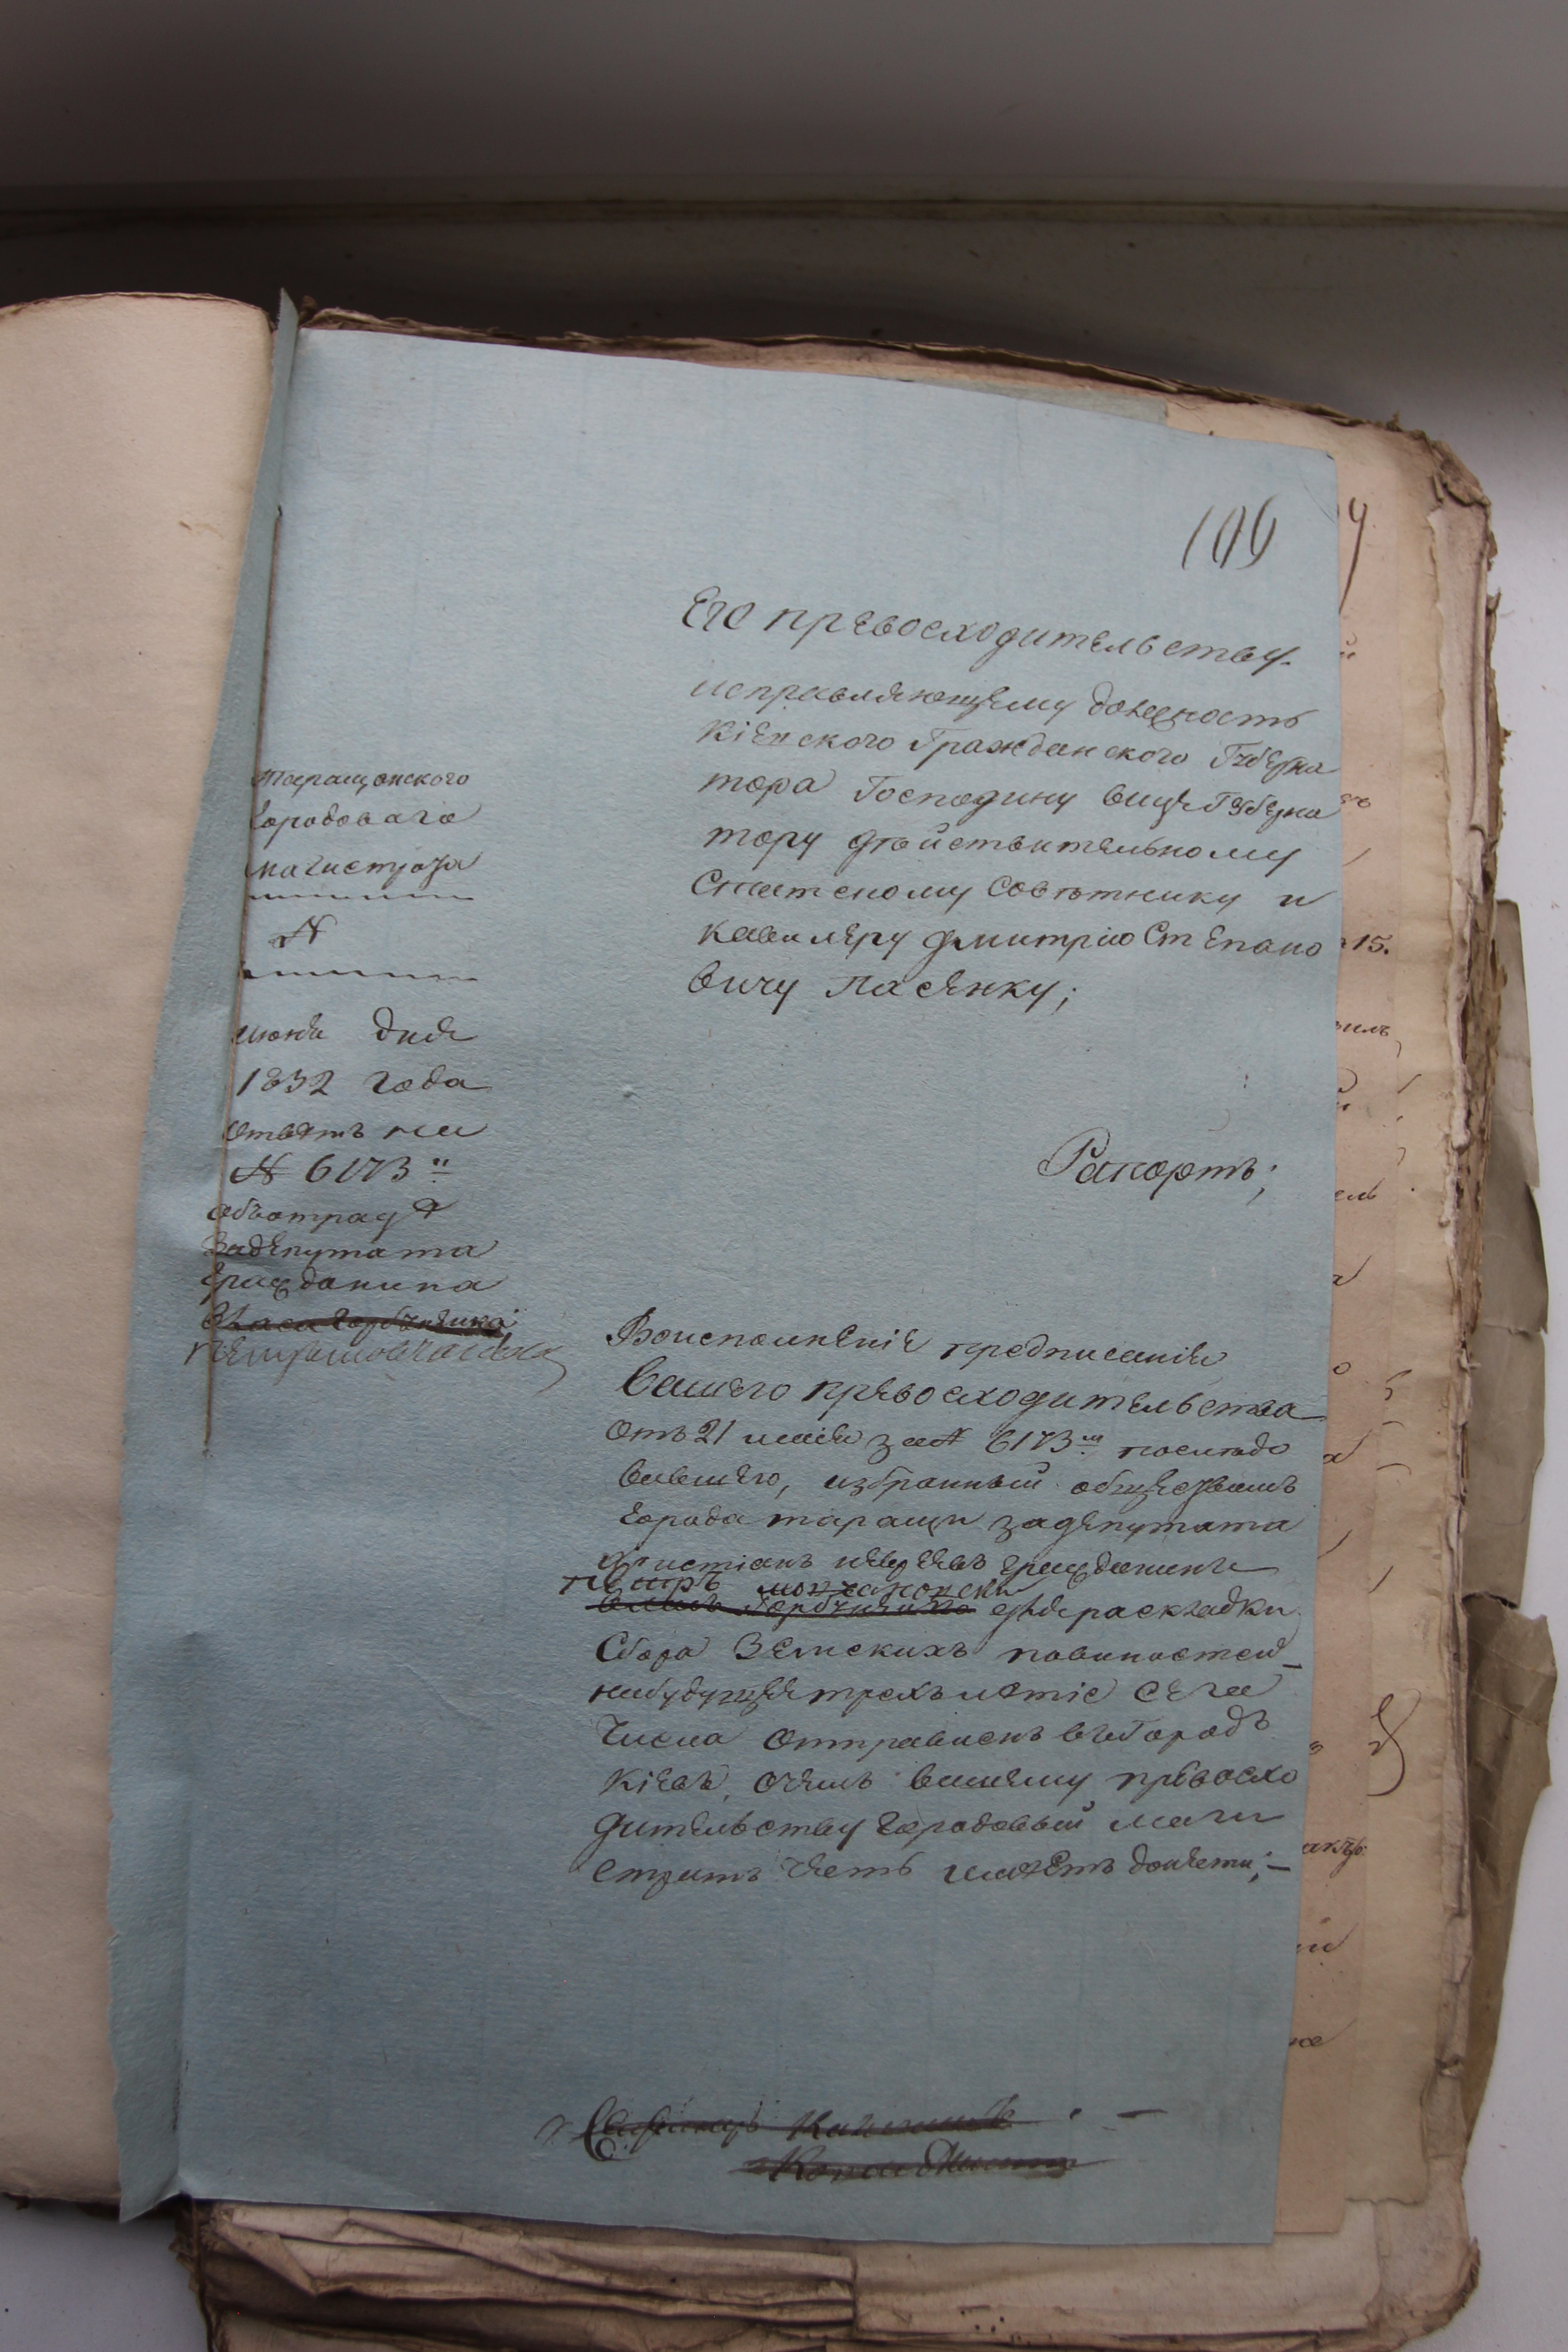 109
Его превосходительству
исправляющему должность
Кіевского Гражданского Губерна
тора Господину вице Губерна
тору дѣйствительному
Статскому Совѣтнику и
кавалеру дмитрію Степано
вичу Пасенку;
таращанского
Городоваго
магистрата
N
июня дня
1832 года
Ответъ на
N 6173
оботправѣ
задепутата
гражданина
Рапортъ;
Воисполненіе предписанія
Вашего превосходительства
Отъ 21 маія за N 6173 последо
вавшего, избранный обществомъ
города таращи задепутата
христіанъ гражданинъ
петръ
для раскладки
Сбора Земскихъ повиностей
набудущее трехълетіе сего
Числа отправленъ въ Городъ
Кіевъ, очемъ вашему превосхо
дительству городовый маги
стратъ честь имѣетъ донести;